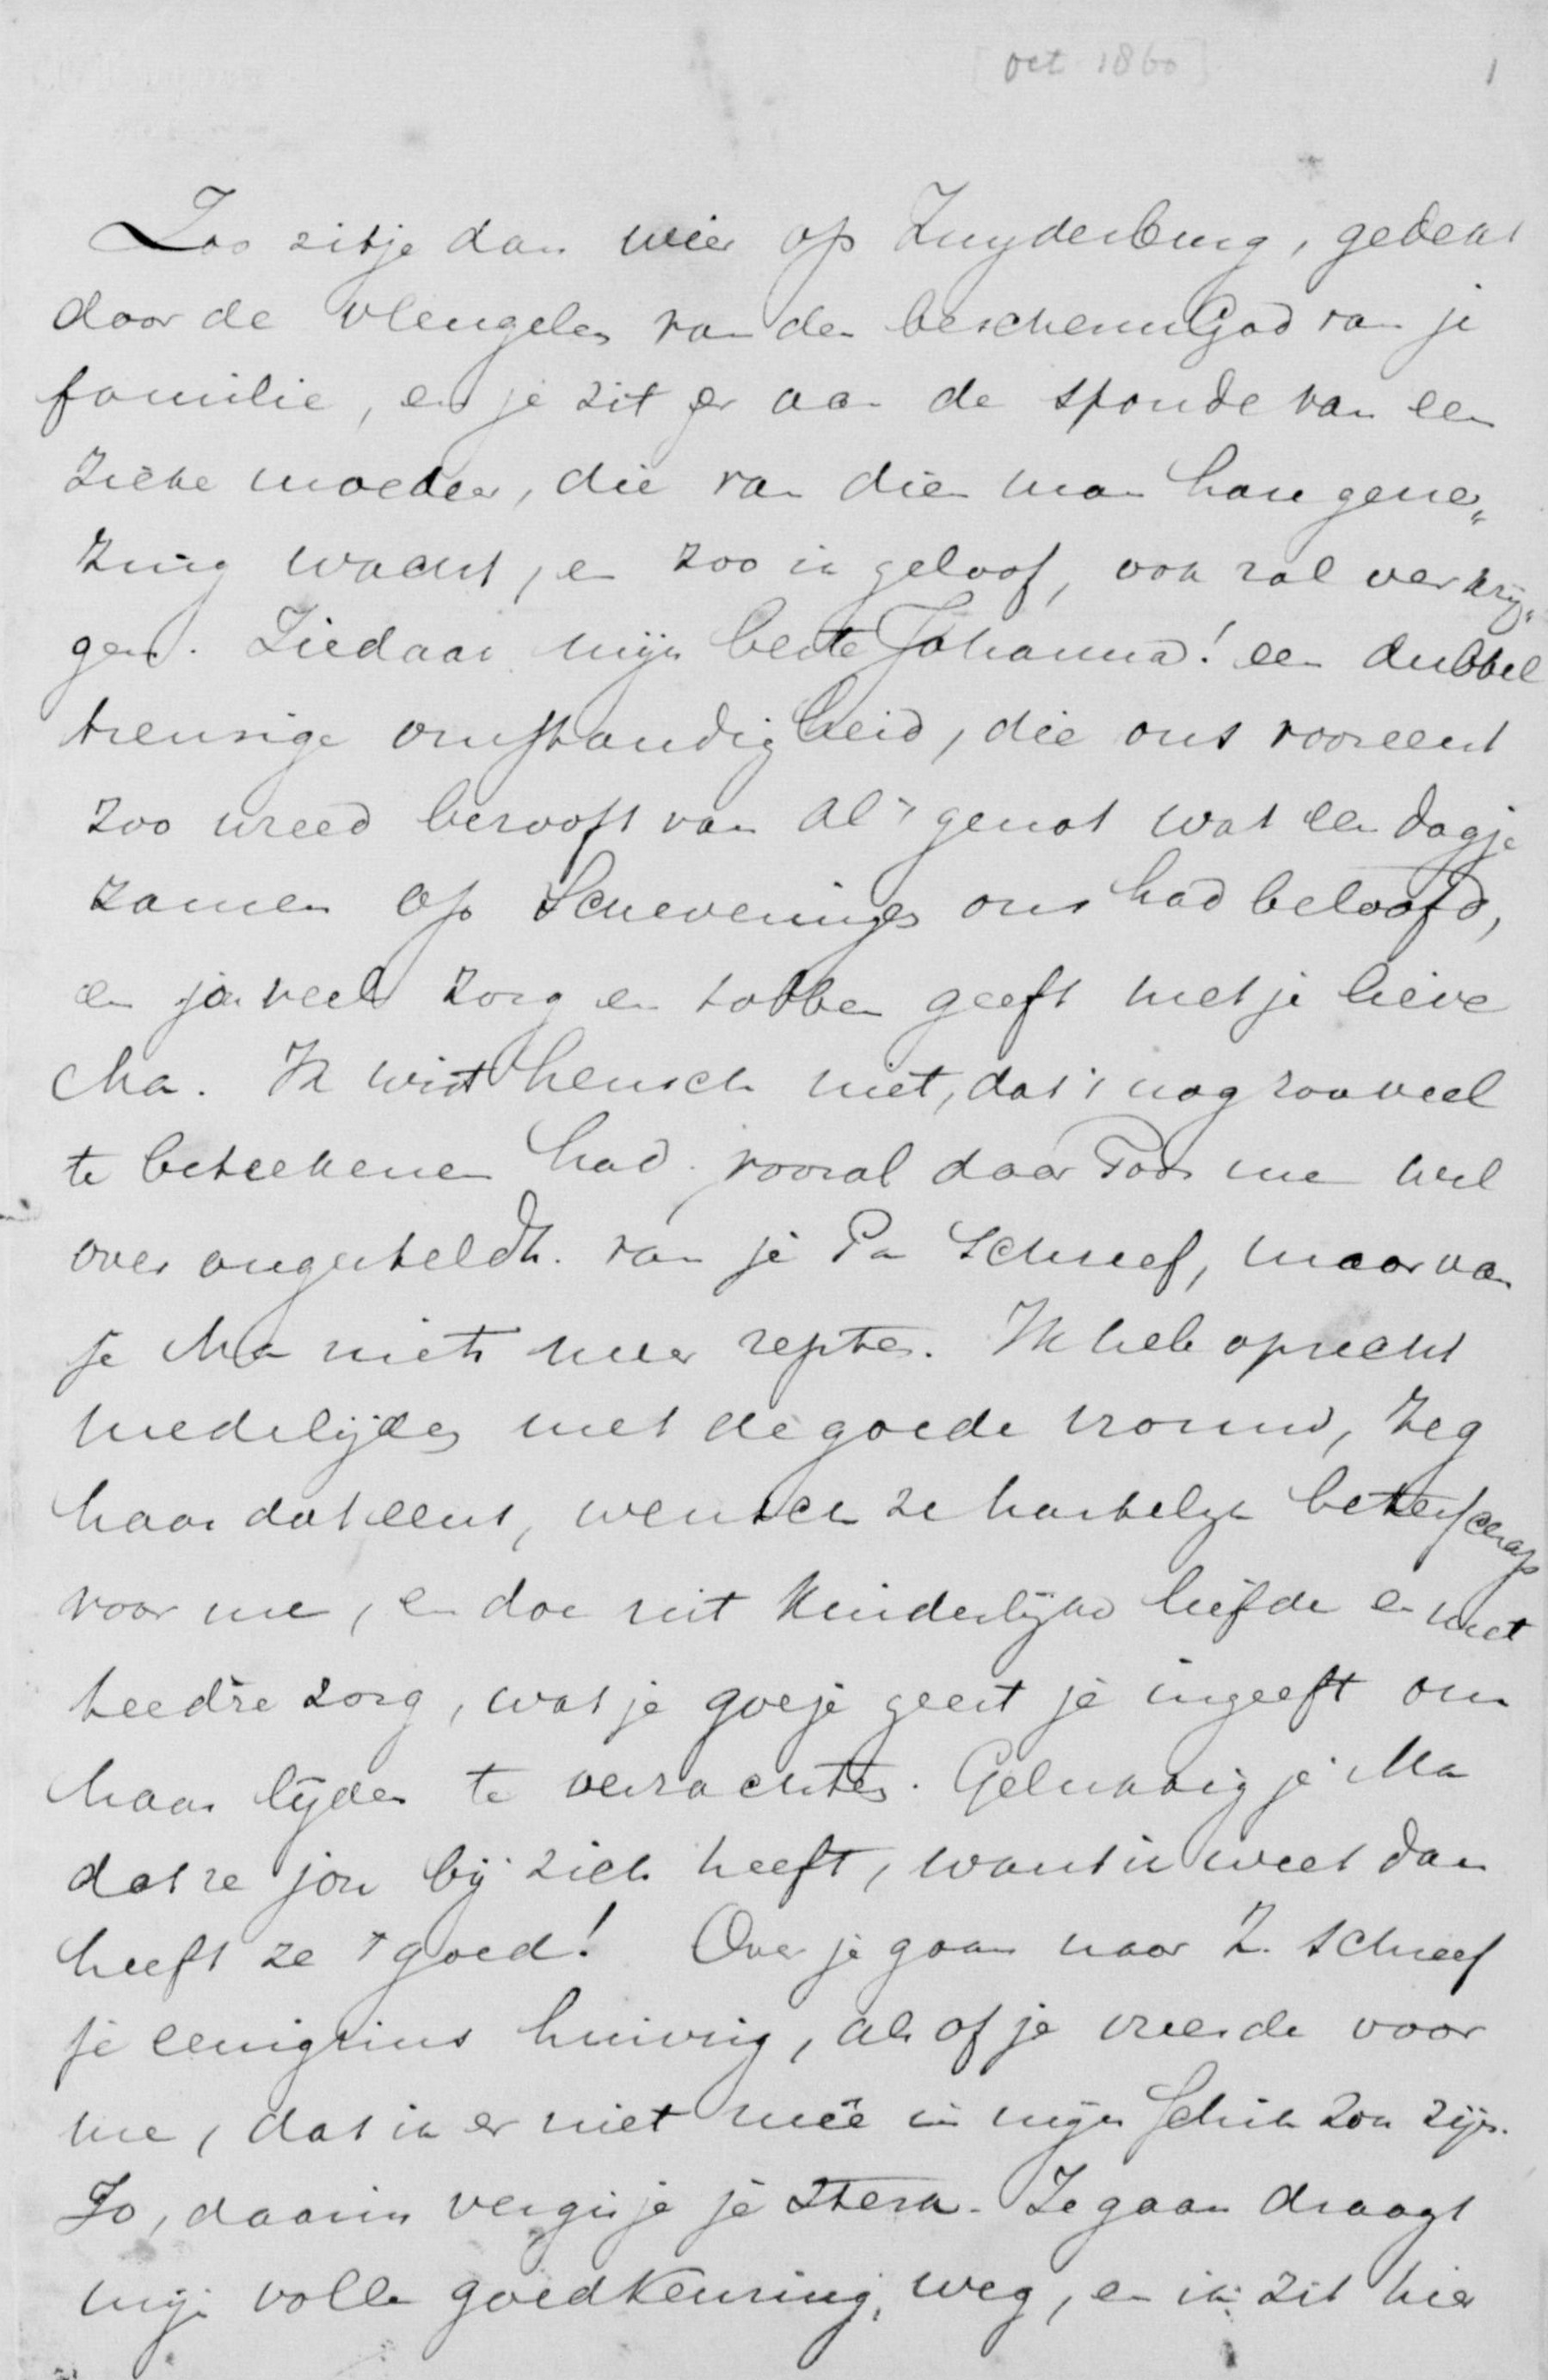 [oct 1860]
1
Zoo zitje dan weer op Zuyderburg, gedekt
door de vleugelen van den beschermGod van je
familie, en je zit er aan de sponde van een
zieke moeder, die van dien man hare gene„
zing wacht, en zoo ik geloof, ook zal verkrij„
gen. Ziedaar mijn beste Johanna! een dubbel
treurige omstandigheid, die ons vooreerst
zoo wreed berooft van al 't genot wat een dagje
zamen op Scheveningen ons had beloofd,
en jou veel zorg en tobben geeft met je lieve
Ma. Ik wist heusch niet, dat 't nog zooveel
te beteekenen had. vooral daar Toos me wel
over ongesteldh. van je Pa schreef, maar van
je Ma niets meer repte. Ik heb oprecht
medelijden met de goede vrouw, zeg
haar dat eens, wensch ze hartelijk beterschap
voor me, en doe uit kinderlijke liefde en met
teed're zorg, wat je goeje geest je ingeeft om
haar lijden te verzachten. Gelukkig je Ma
dat ze jou bij zich heeft, want ik weet dan
heeft ze 't goed! Over je gaan naar Z. schreef
je eenigzins huiverig, als of je vreesde voor
me, dat ik er niet meê in mijn schik zou zijn.
Jo, daarin vergis je je sterk. Je gaan draagt
mijn volle goedkeuring weg, en ik zit hier